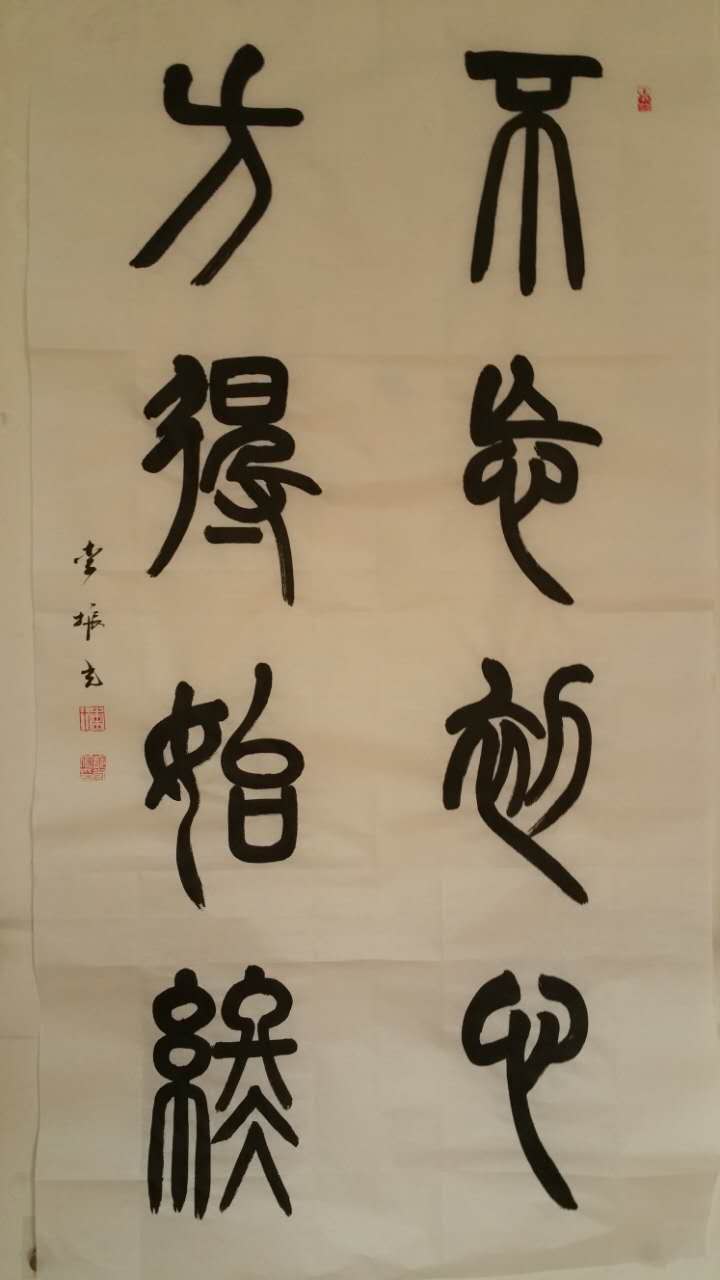 不忘初心
方得始終
振